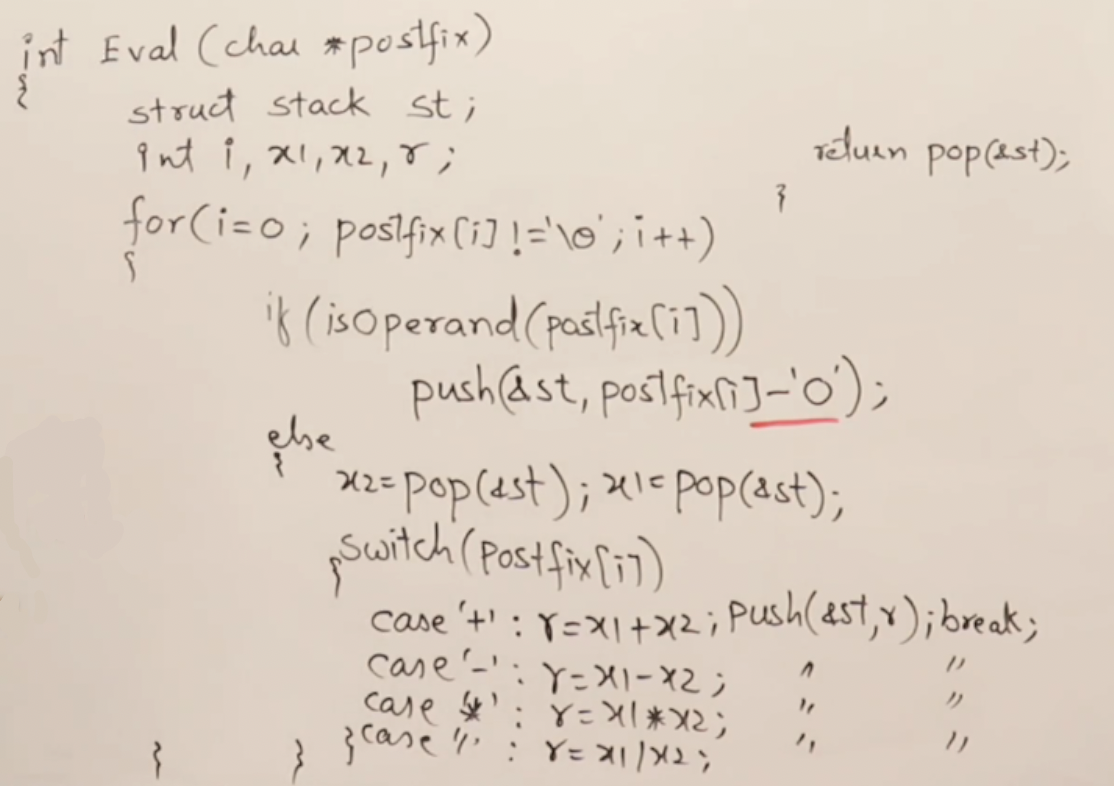 int Eval (char *postfix)
{
struct stack st;
int i, x1, x2, r;
for(i=0; postfix[i] !='\0'; i++)
{
if (isOperand(postfix[i]))
push(&st, postfix[i]-'0');
else
{
x2=pop(&st); x1=pop(&st);
switch(postfix[i])
{
case '+' : r=x1+x2; push(&st,r); break;
case '-' : r=x1-x2; " "
case '*' : r=x1*x2; " "
} } } case '/' : r=x1/x2; " "
return pop(&st);
}